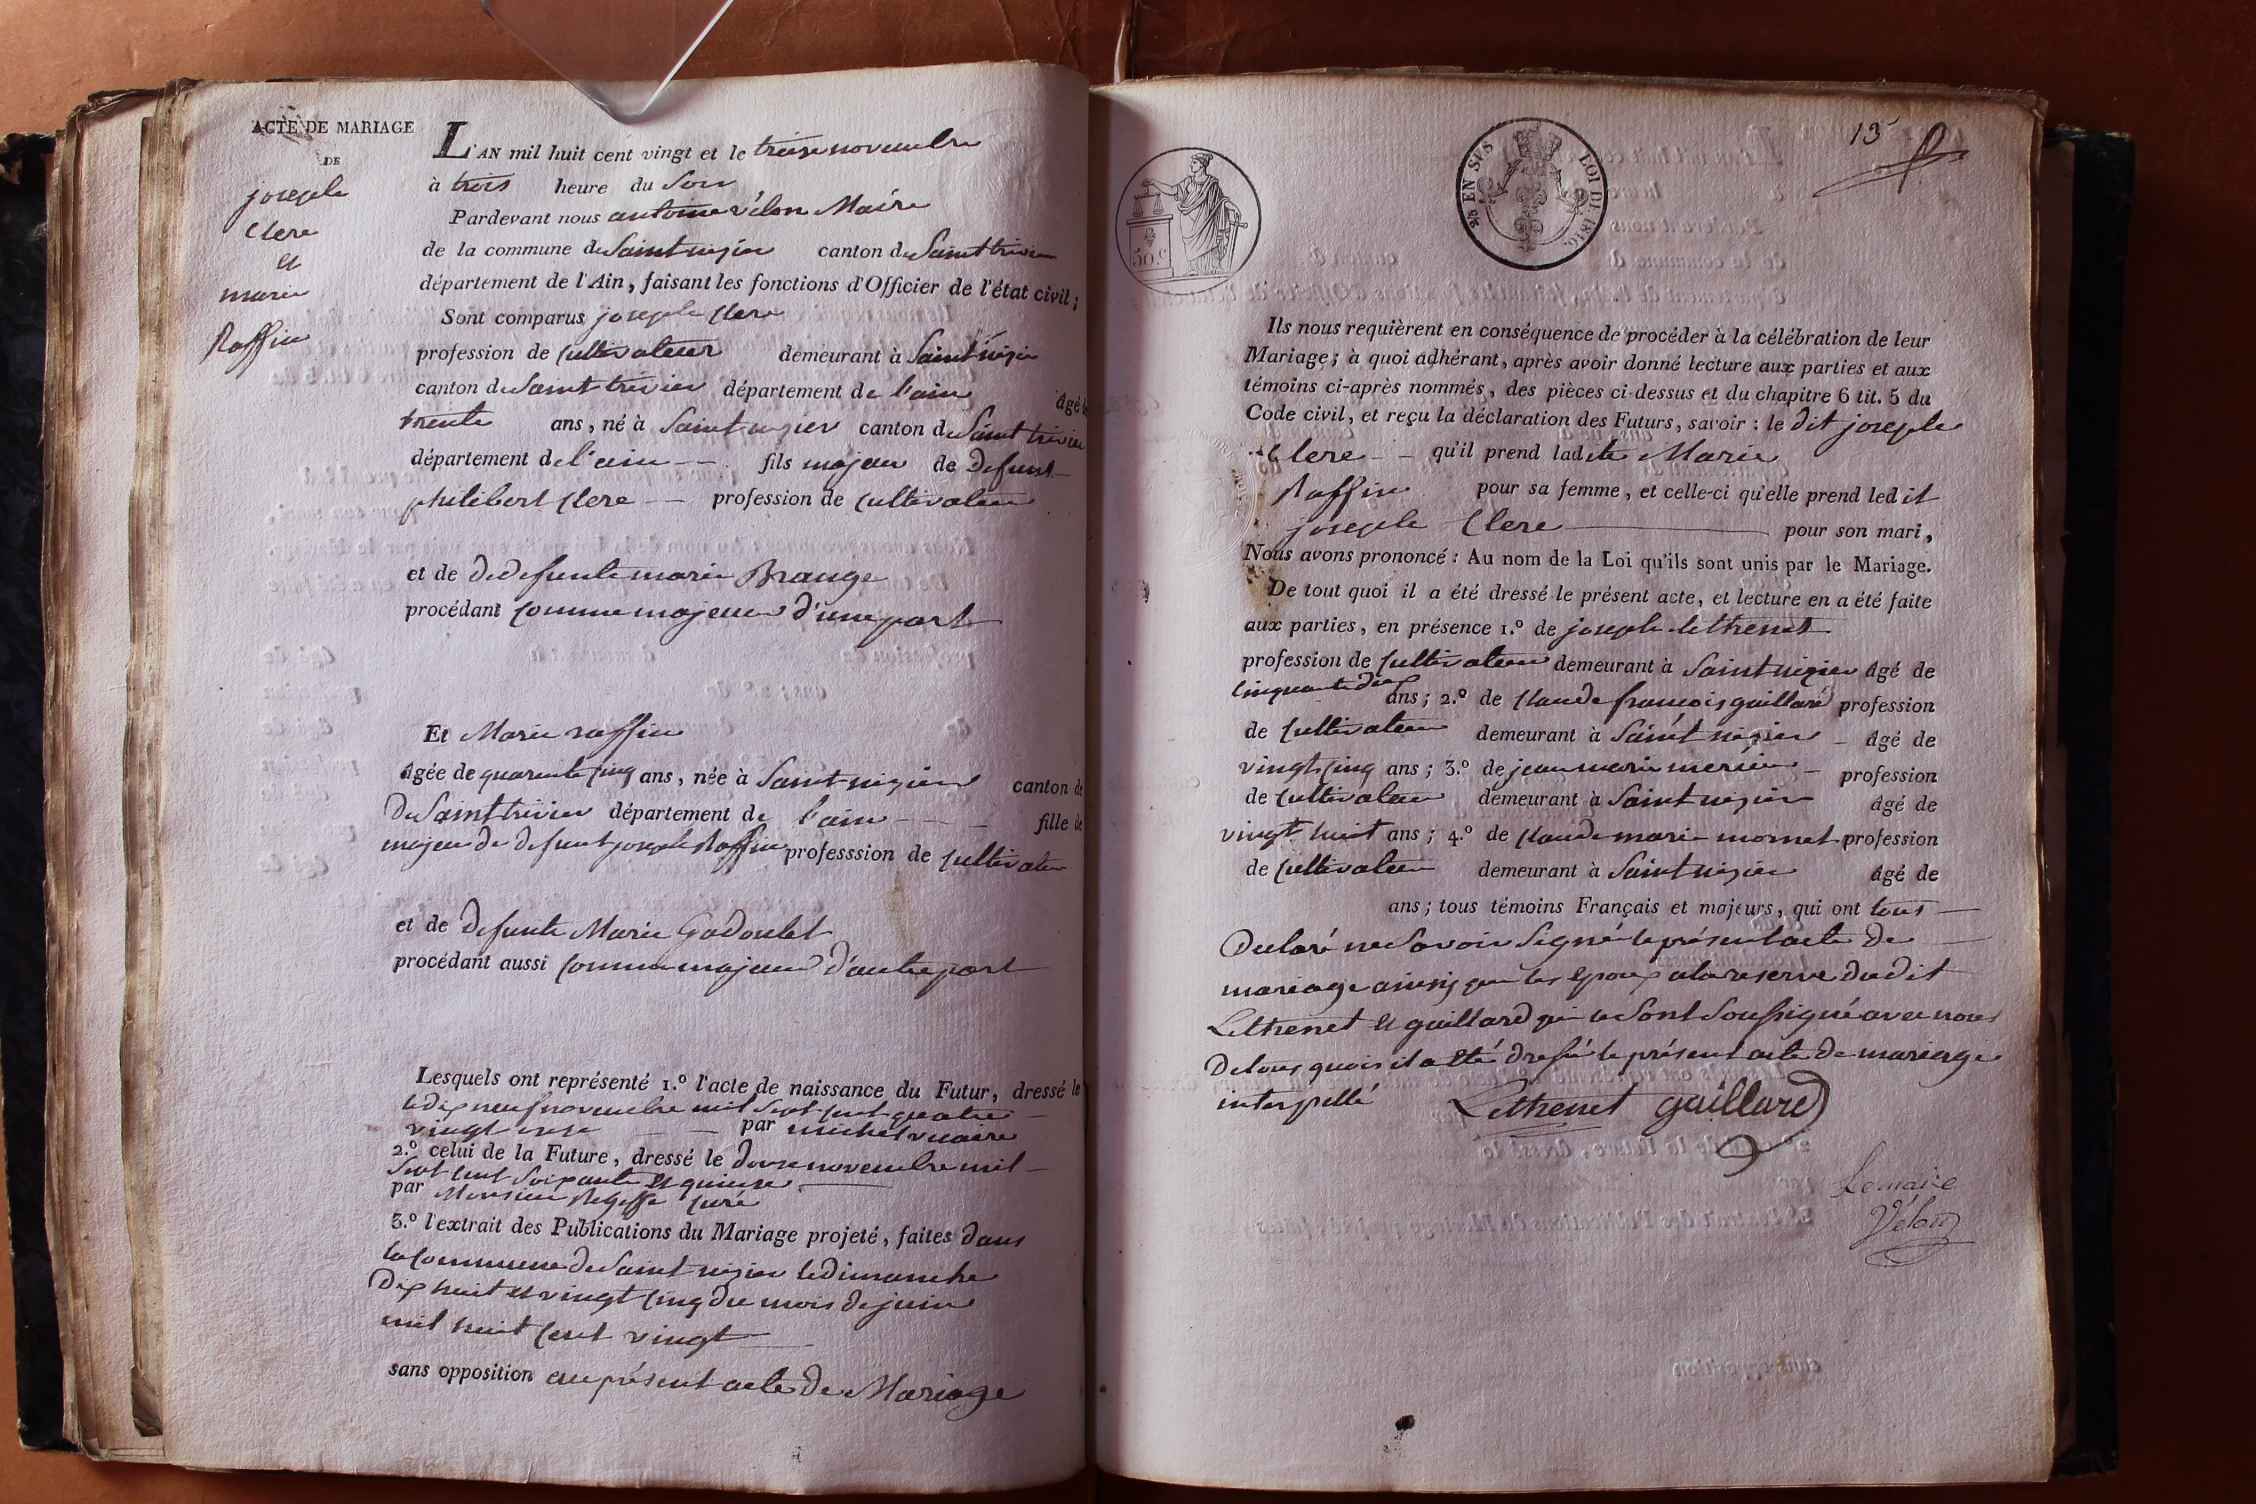 ACTE DE MARIAGE
DE
joseph
Clere
et
marie
Raffin
L'AN mil huit cent vingt et le treize novembre
à trois heure du soir
Pardevant nous antoine vélon Maire
de la commune de Saint nizier canton de Saint trivier
département de l'Ain, faisant les fonctions d'Officier de l'état civil;
Sont comparus joseph Clere
profession de Cultivateur demeurant à Saint nizier
canton de Saint trivier département de l'ain âgé de
trente ans, né à Saint nizier canton de Saint trivier
département de l'ain fils majeur de defunt
philibert Clere profession de Cultivateur
et de de defunte marie Brange
procédant comme majeur d'une part
Et Marie raffin
âgée de quarente cinq ans, née à Saint nizier canton de
de Saint trivier département de l'ain fille de
majeur de defunt joseph Raffin professsion de Cultivateur
et de defunte Marie Gadoulet
procédant aussi comme majeur d'autre part
Lesquels ont représenté 1.º l'acte de naissance du Futur, dressé le
le dix neuf novembre mil sept cent quatre
vingt onze par michel vicaire
2.º celui de la Future, dressé le douze novembre mil
sept cent soixante et quinze
par Monsieur curé
3.º l'extrait des Publications du Mariage projeté, faites dans
la Commune de Saint nizier le dimanche
dix huit et vingt cinq du mois de juin
mil huit cent vingt
sans opposition au présent acte de Mariage
13
50 c
EN SUS LOI DE 1816.
Ils nous requièrent en conséquence de procéder à la célébration de leur
Mariage; à quoi adhérant, après avoir donné lecture aux parties et aux
témoins ci-après nommés, des pièces ci-dessus et du chapitre 6 tit. 5 du
Code civil, et reçu la déclaration des Futurs, savoir : le dit joseph
Clere qu'il prend ladite Marie
Raffin pour sa femme, et celle-ci qu'elle prend ledit
joseph Clere pour son mari,
Nous avons prononcé : Au nom de la Loi qu'ils sont unis par le Mariage.
De tout quoi il a été dressé le présent acte, et lecture en a été faite
aux parties, en présence 1.º de joseph lethenet
profession de Cultivateur demeurant à Saint nizier âgé de
cinquante deux ans; 2.º de Claude françois guillard profession
de Cultivateur demeurant à Saint nizier âgé de
vingt cinq ans; 3.º de jean marie profession
de Cultivateur demeurant à Saint nizier âgé de
vingt huit ans; 4.º de Claude marie mornet profession
de Cultivateur demeurant à Saint nizier âgé de
ans; tous témoins Français et majeurs, qui ont tous
declaré ne savoir signé le présent acte de
mariage ainsy que les epoux a la reserve dudit
Lethenet et guillard qui se sont soussigné avec nous
de tous quois il a été dressé le présent acte de mariage
interpellé Lethenet gaillard
Lemaire
Vélon